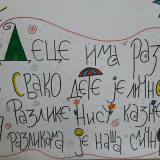 Деце има раз
Свако дете је лично
Разлике нису казне
Разликама је наша